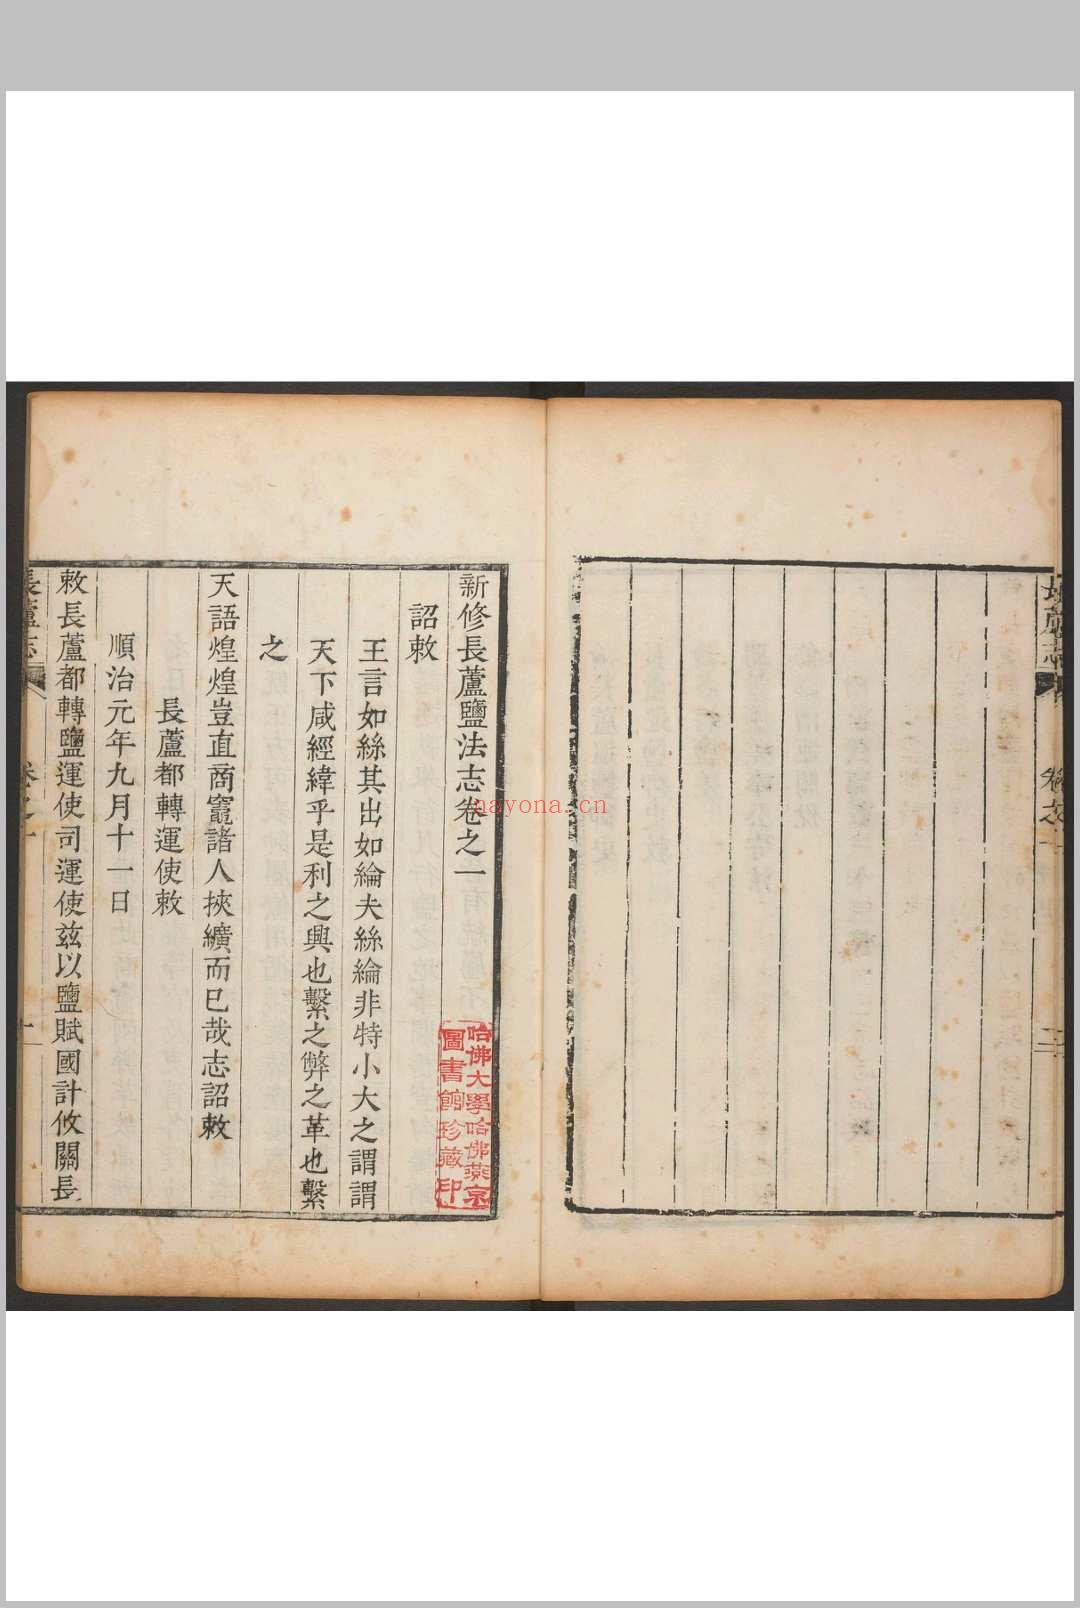 長蘆志
卷之一
新修長蘆鹽法志卷之一
詔敕
王言如絲其出如綸夫絲綸非特小大之謂謂
天下咸經緯乎是利之興也繫之弊之革也繫
之
天語煌煌豈直商竈諸人挾纊而已哉志詔敕
長蘆都轉運使敕
順治元年九月十一日
敕長蘆都轉鹽運使司運使茲以鹽賦國計攸關長
長蘆志
卷之一
一
哈佛大學哈佛燕京
圖書館珍藏印
nayona.cn